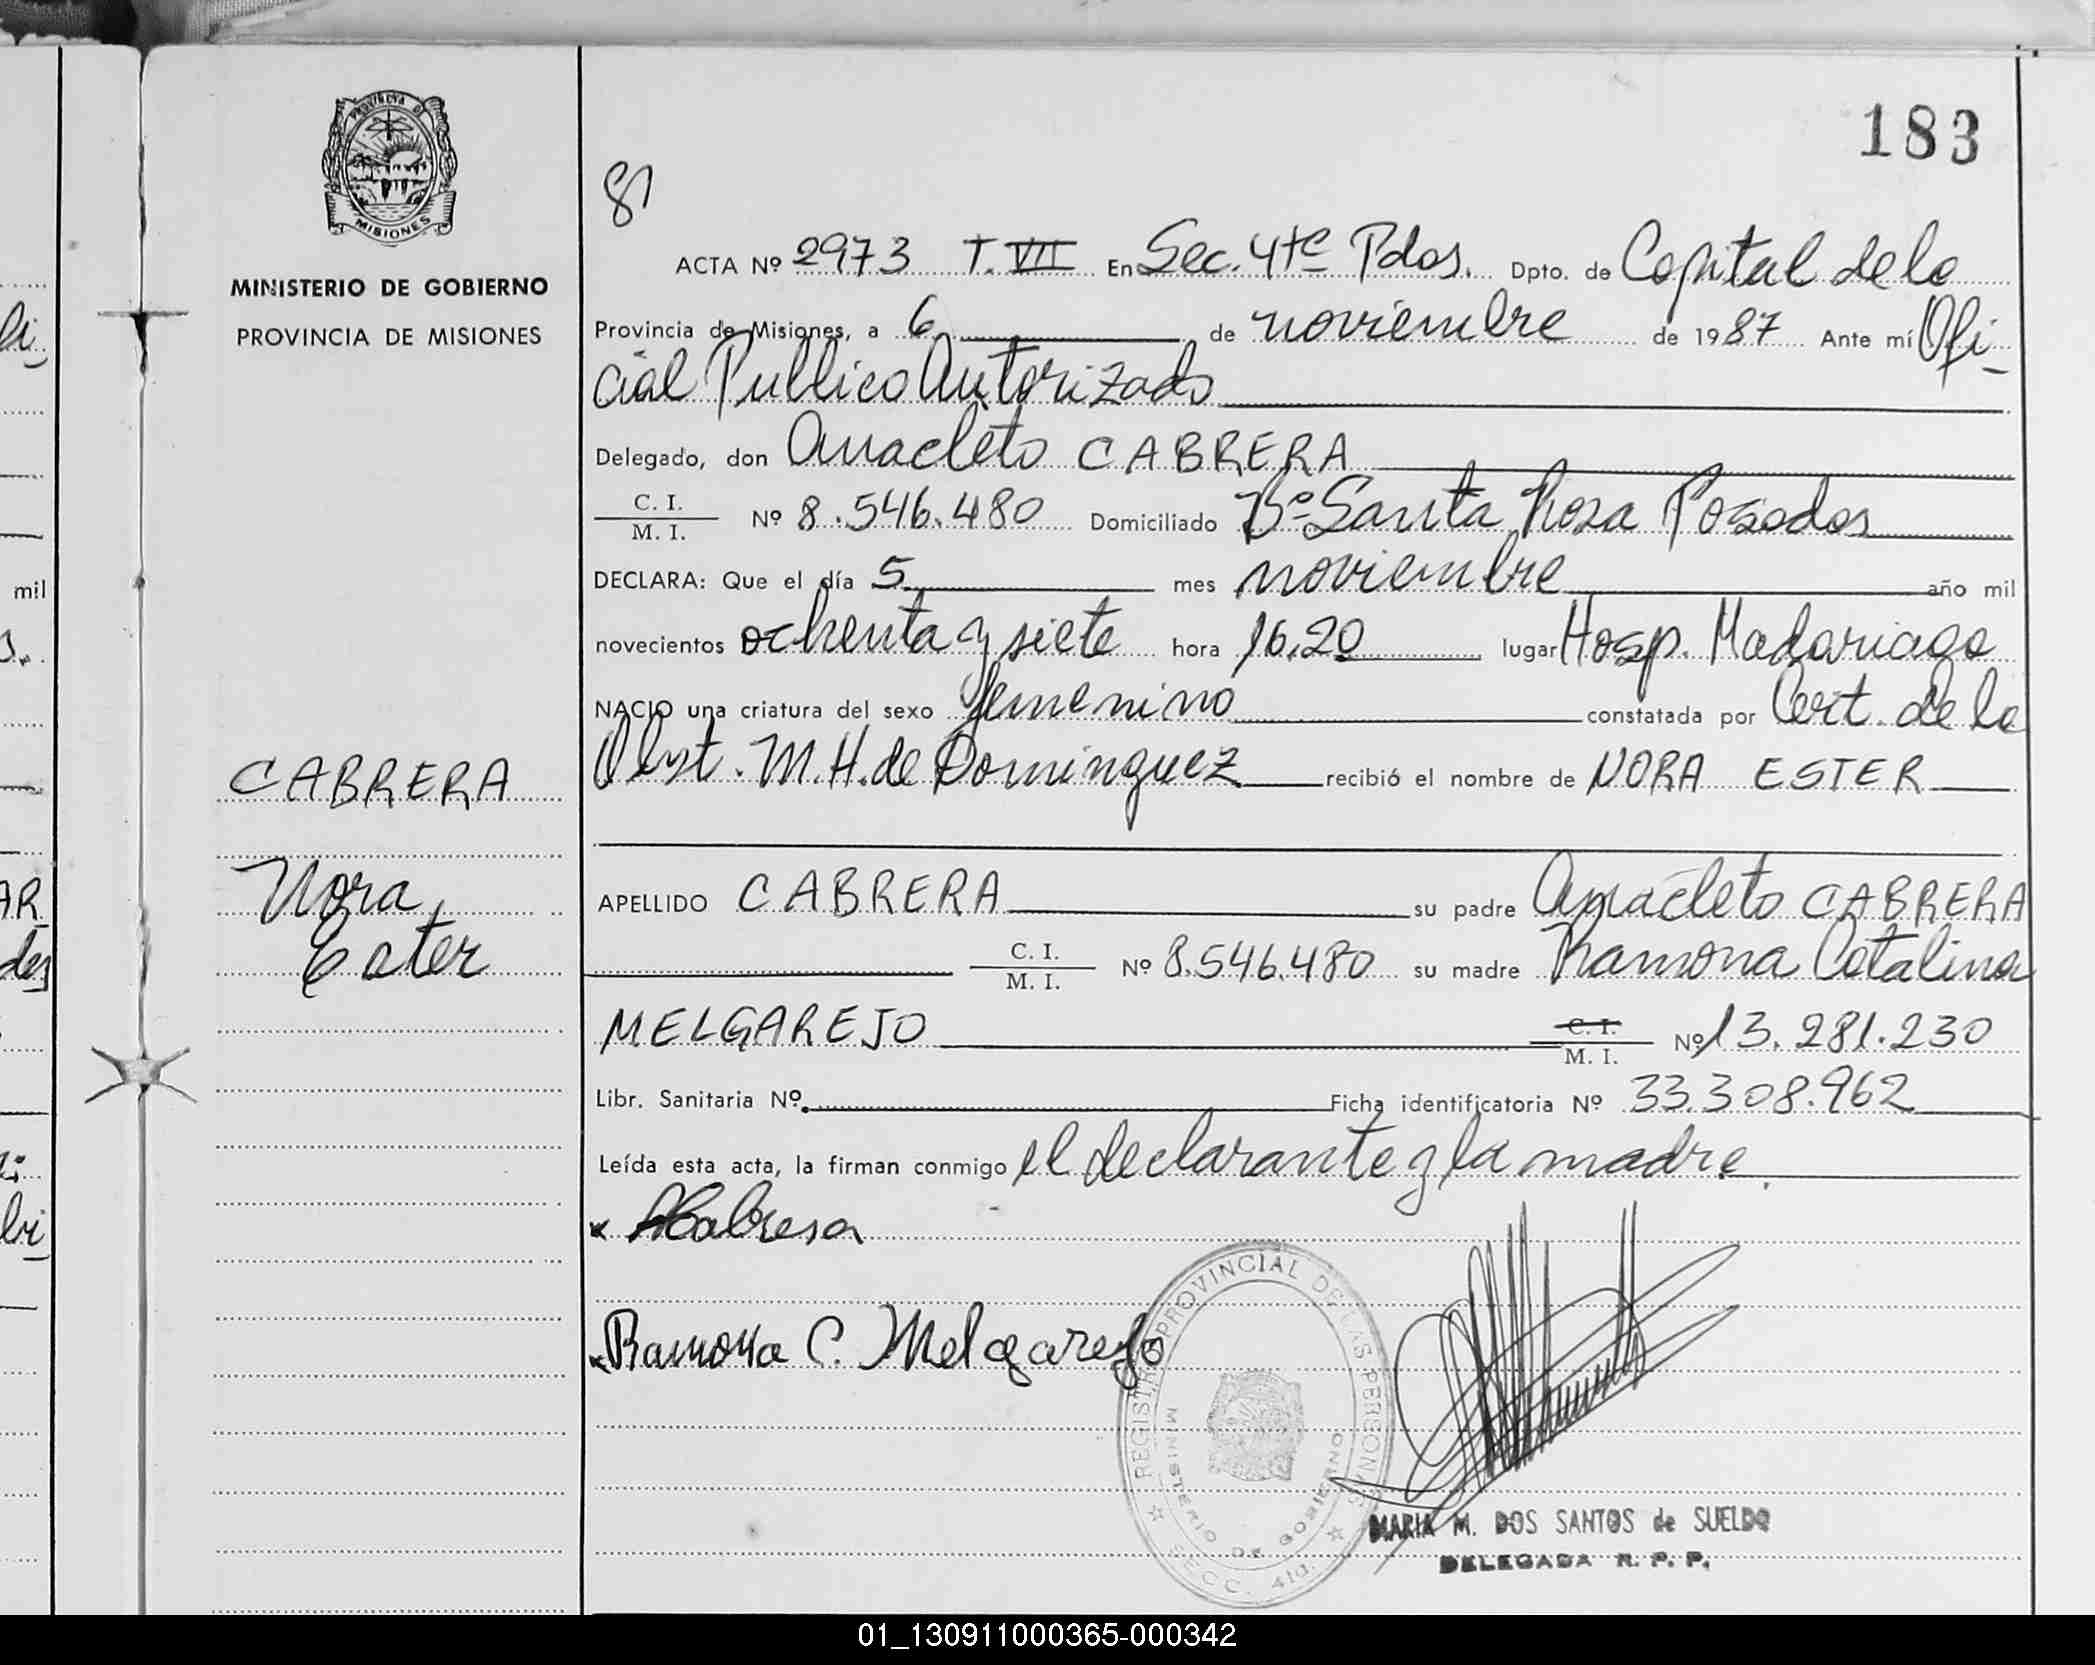 183
PROVINCIA DE
MISIONES
MINISTERIO DE GOBIERNO
PROVINCIA DE MISIONES
ACTA Nº 2973 T. VII En Sec. 4ta Pdas. Dpto. de Capital de la
Provincia de Misiones, a 6 de noviembre de 1987 Ante mí Ofi-
cial Publico Autorizado
Delegado, don Anacleto CABRERA
C. I.
M. I. Nº 8.546.480 Domiciliado Bº Santa Rosa Posadas
DECLARA: Que el día 5 mes noviembre año mil
mil
novecientos ochenta y siete hora 16,20 lugar Hosp. Madariaga
NACIO una criatura del sexo femenino constatada por Cert. de la
Obst. M.H. de Dominguez recibió el nombre de NORA ESTER
CABRERA
Nora
Ester
APELLIDO CABRERA su padre Anacleto CABRERA
C. I.
M. I. Nº 8.546.480 su madre Ramona Catalina
MELGAREJO C. I.
M. I. Nº 13.281.230
Libr. Sanitaria Nº Ficha identificatoria Nº 33.308.962
Leída esta acta, la firman conmigo el declarante y la madre.
x ACabrera
x Ramona C. Melgarejo
REGISTRO PROVINCIAL DE LAS PERSONAS
MINISTERIO DE GOBIERNO
SECC. 4ta.
MARIA M. DOS SANTOS de SUELDO
DELEGADA R. P. P.
01_130911000365-000342